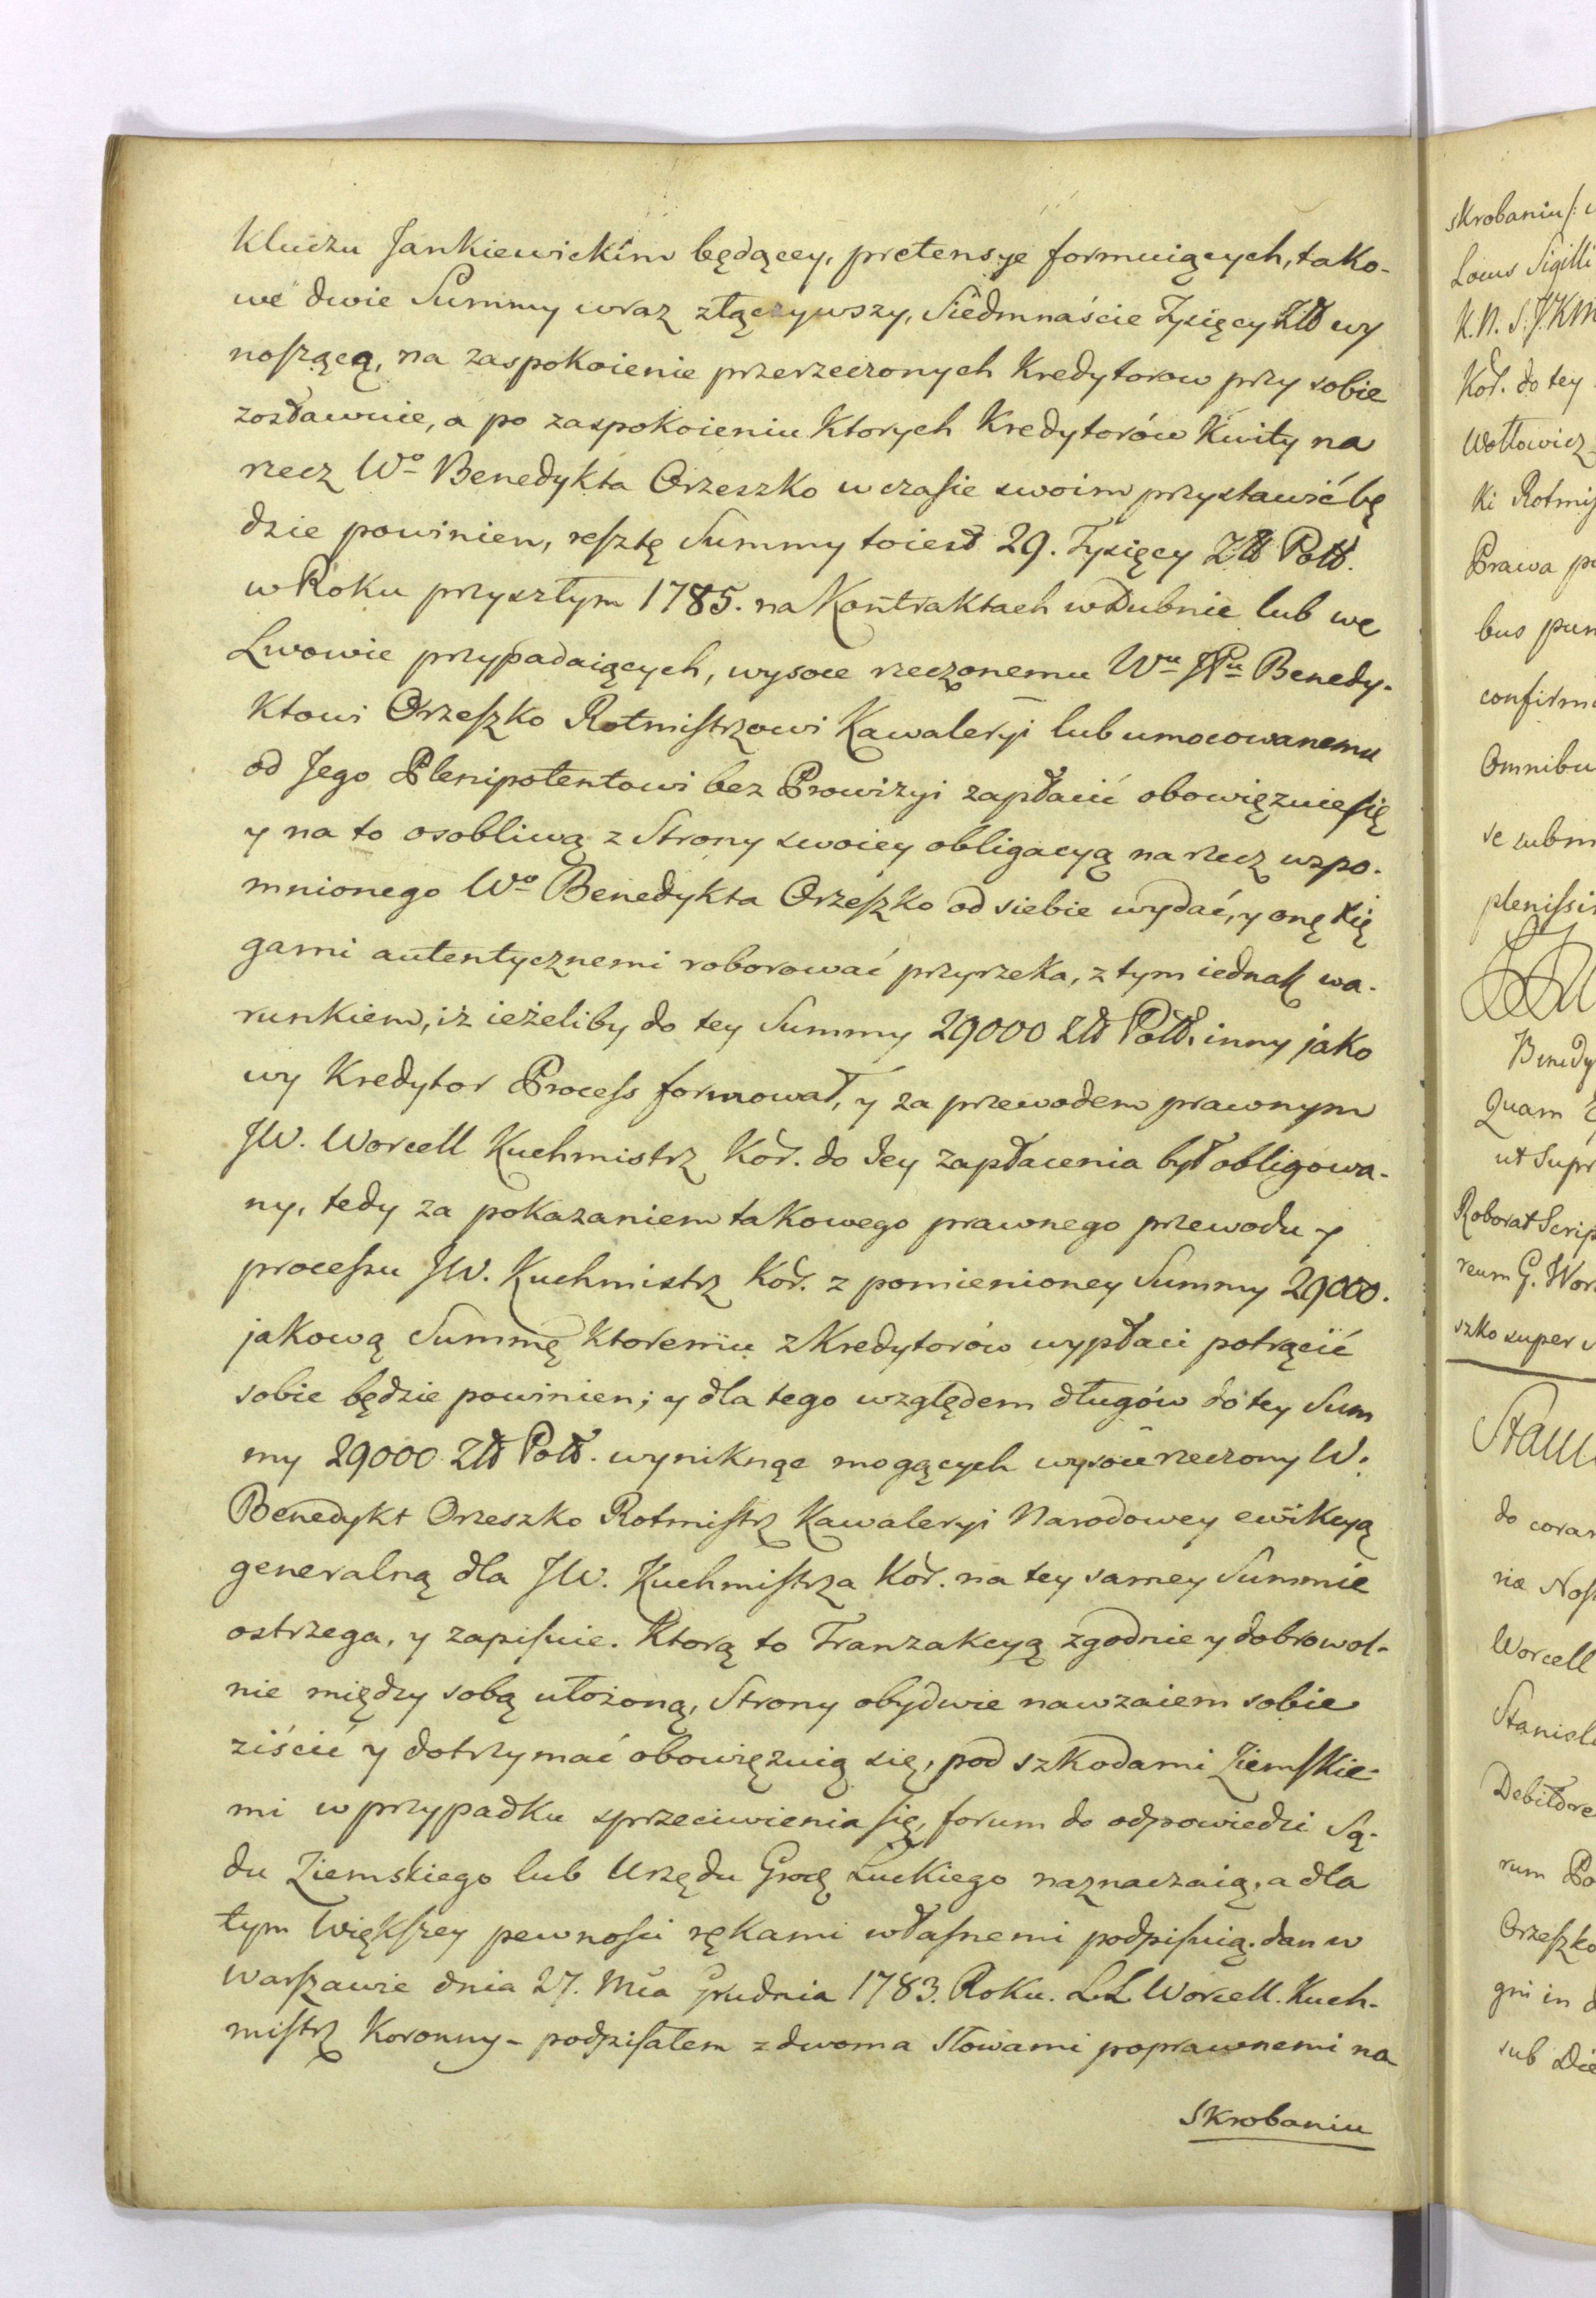 Kluczu Jankiewickim będącey, pretensye formuiących, tako-
we dwie Summy wraz złączywszy, Siedmnaście Tysięcy Złł wy
noszącą, na zaspokoienie przerzeczonych Kredytorow przy sobie
zostawuie, a po zaspokoieniu Ktorych Kredytorów Kwity na
rzecz Wo Benedykta Orzeszko w czasie swoim przystawić bę
dzie powinien, resztę Summy toiest 29. Tysięcy Złł Poll.
w Roku przyszłym 1785. na Kontraktach w Dubnie lub we
Lwowie przypadaiących, wysoce rzeczonemu Wu JPu Benedy-
Ktowi Orzeszko Rotmistrzowi Kawaleryi lub umocowanemu
od Jego Plenipotentowi bez Prowizyi zapłacić obowięzuie się
y na to osobliwą z Strony swoiey obligacyą na rzecz wspo-
mnionego Wo Benedykta Orzeszko od siebie wydać, y onę Xię
gami autentycznemi roborować przyrzeka, z tym iednak wa-
runkiem, iż ieżeliby do tey Summy 29000 Złł Poll. inny jako
wy Kredytor Process formował, y za przewodem prawnym
JW. Worcell Kuchmistrz Kor. do Jey zapłacenia był obligowa-
ny, tedy za pokazaniem takowego prawnego przewodu y
processu JW. Kuchmistrz Kor. z pomienioney Summy 29000.
jakową Summę Ktoremu z Kredytorów wypłaci potrącić
sobie będzie powinien; y dla tego względem długów do tey Sum
my 29000 Złł Poll. wyniknąc mogących wysoce rzeczony W.
Benedykt Orzeszko Rotmistrz Kawaleryi Narodowey ewikcyą
generalną dla JW. Kuchmistrza Kor. na tey samey Summie
ostrzega, y zapisuie. Ktorą to Tranzakcyą zgodnie y dobrowol-
nie między sobą ułożoną, Strony obydwie nawzaiem sobie
ziścić y dotrzymać obowięzuią się, pod szkodami Ziemskie-
mi w przypadku sprzeciwienia się, forum do odpowiedzi Są-
du Ziemskiego lub Urzędu Grodz Łuckiego naznaczaią, a dla
tym Większey pewności rękami własnemi podpisuią. dan w
Warszawie dnia 27. Mca Grudnia 1783. Roku. LL Worcell. Kuch-
mistrz Koronny - podpisałem z dwoma Słowami poprawnemi na
Skrobaniu
skrobaniu
Locus Sigilli
K.N. S. J.K.M
Kor. do tey
Wołłowicz
Ki Rotmis
Prawa
bus
Omnibu
se subm
plenissi
Benedy
Quam
ut Supr
Roborat Scrip
reum G. Wor
szko super
do coram
Worcell
Stanisl
Debitore
rum
Orzeszko
gni in
sub Die